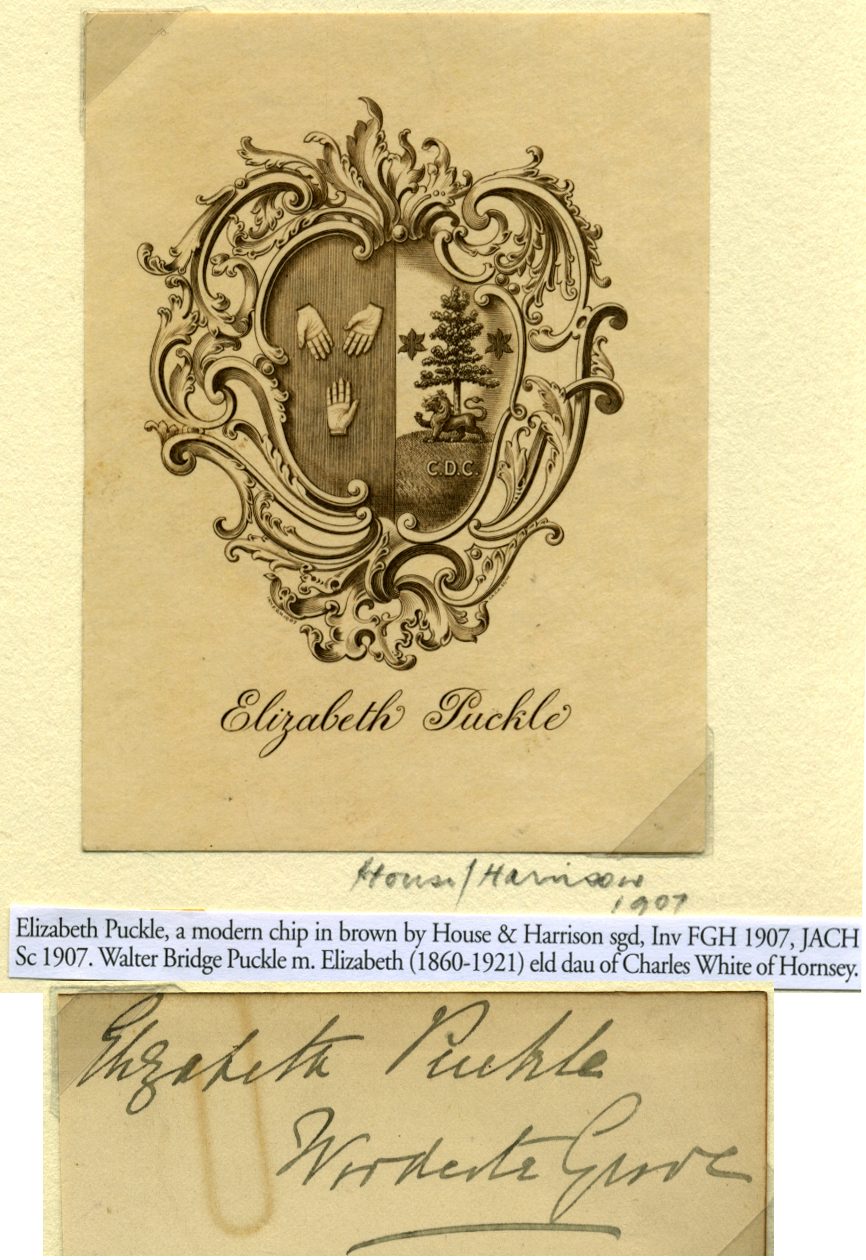 C.D.C.
Elizabeth Puckle
House/Harrison
1907
Elizabeth Puckle, a modern chip in brown by House & Harrison sgd, Inv FGH 1907, JACH
Sc 1907. Walter Bridge Puckle m. Elizabeth (1860-1921) eld dau of Charles White of Hornsey.
Elizabeth Puckle
Grove